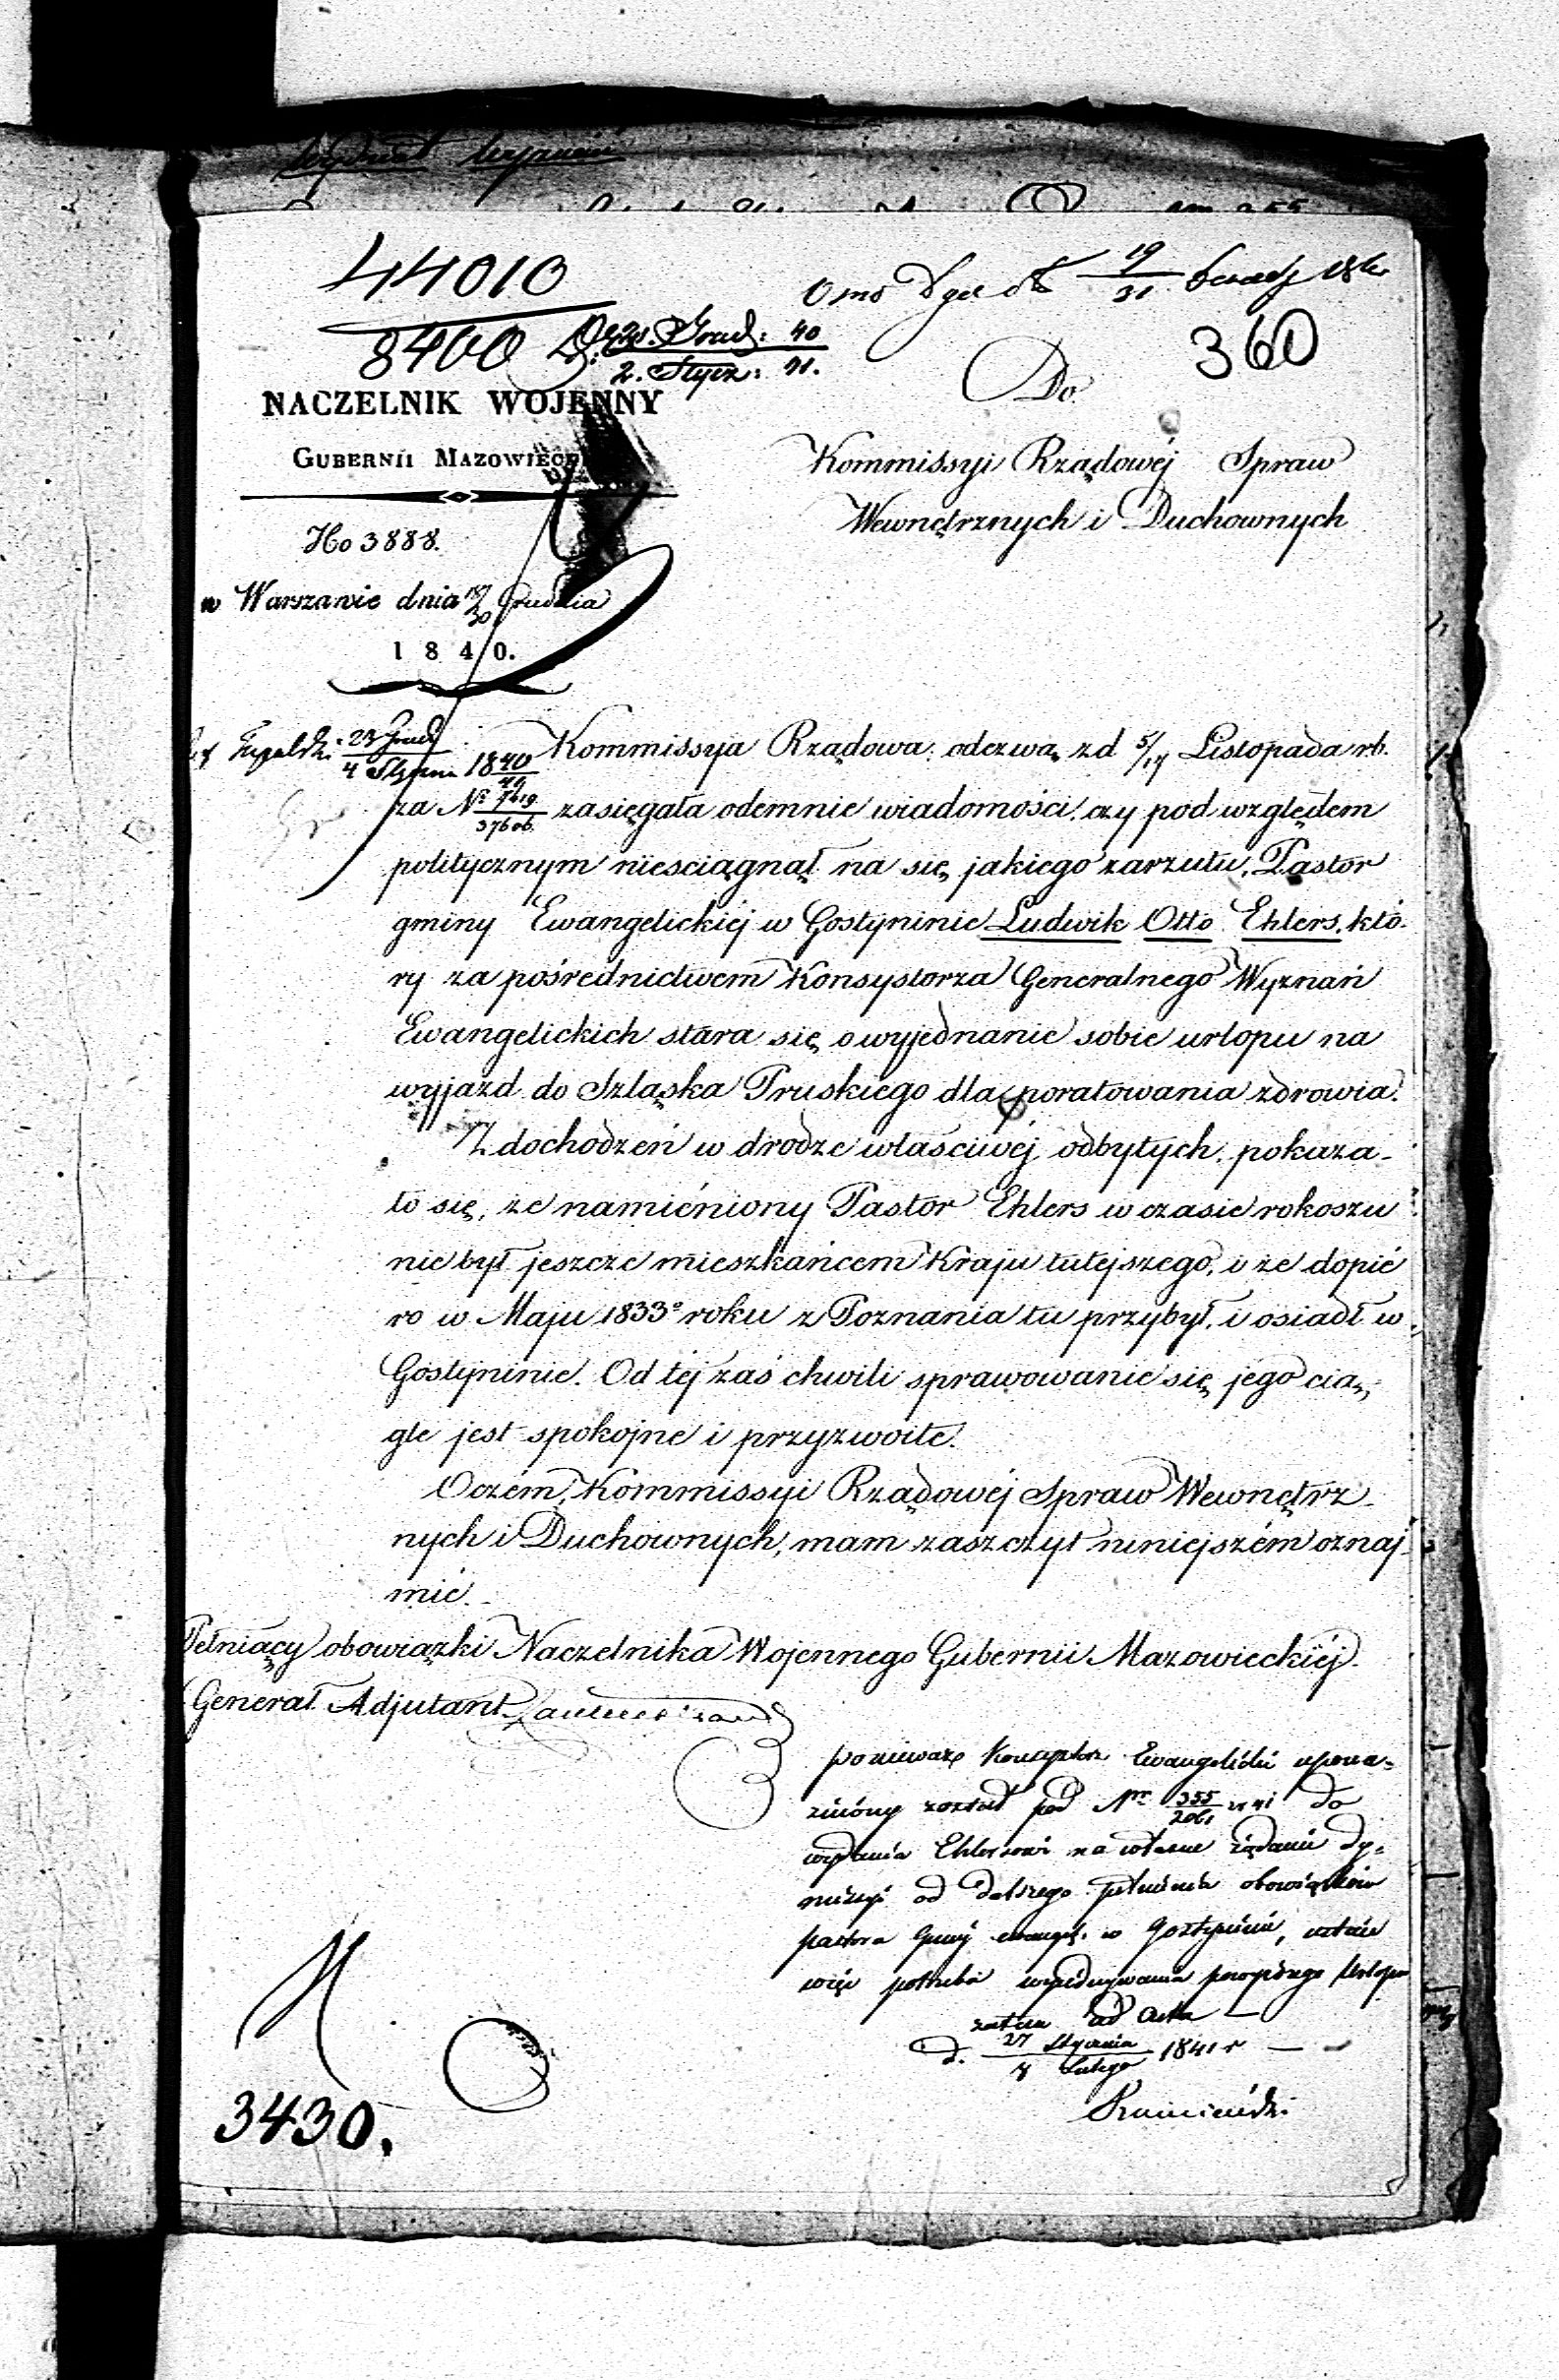 44010
8400
21. Grud: 40
2. Stycz: 41.
19
31
360
NACZELNIK WOJENNY
GUBERNII MAZOWIECK
No 3888.
w Warszawie dnia 18/30 Grudnia
1840.
Do
Kommissyi Rządowéj Spraw
Wewnętrznych i Duchownych
23 Grud
4 Styczn 1840
41
Kommissya Rządowa odezwą z d 5/17 Listopada rb.
za No 7419/37606 zasięgała odemnie wiadomości czy pod względem
politycznym niesciągnął na się jakiego zarzutu, Pastor
gminy Ewangelickiéj w Gostyninie Ludwik Otto Ehlers, któ-
ry za pośrednictwem Konsystorza Generalnego Wyznań
Ewangelickich stara się o wyjednanie sobie urlopu na
wyjazd do Szląska Pruskiego dla poratowania zdrowia.
Z dochodzeń w drodze właściwéj odbytych, pokaza-
ło się, że namiéniony Pastor Ehlers w czasie rokoszu
nie był jeszcze mieszkańcem Kraju tutejszego, i że dopié
ro w Maju 1833o roku z Poznania tu przybył, i osiadł w
Gostyninie. Od téj zaś chwili sprawowanie się jego cią-
gle jest spokojne i przyzwoite.
O czém, Kommissyi Rządowéj Spraw Wewnętrz-
nych i Duchownych, mam zaszczyt niniejszém oznaj-
mić.
Pełniący obowiązki Naczelnika Wojennego Gubernii Mazowieckiéj.
Generał Adjutant
ponieważ Konsystorz Ewangelicki upowa-
żniony został pod Nr 355/2061 do
wydania Ehlersowi na własne żądanie dy-
missyi od dalszego pełnienia obowiązków
pastora Gminy ewangel. w Gostyninie, ustaie
więc potrzeba wyjednywania powyższego Urlopu
zatem ad acta
d. 27 Stycznia
4 Lutego 1841 r
3430.